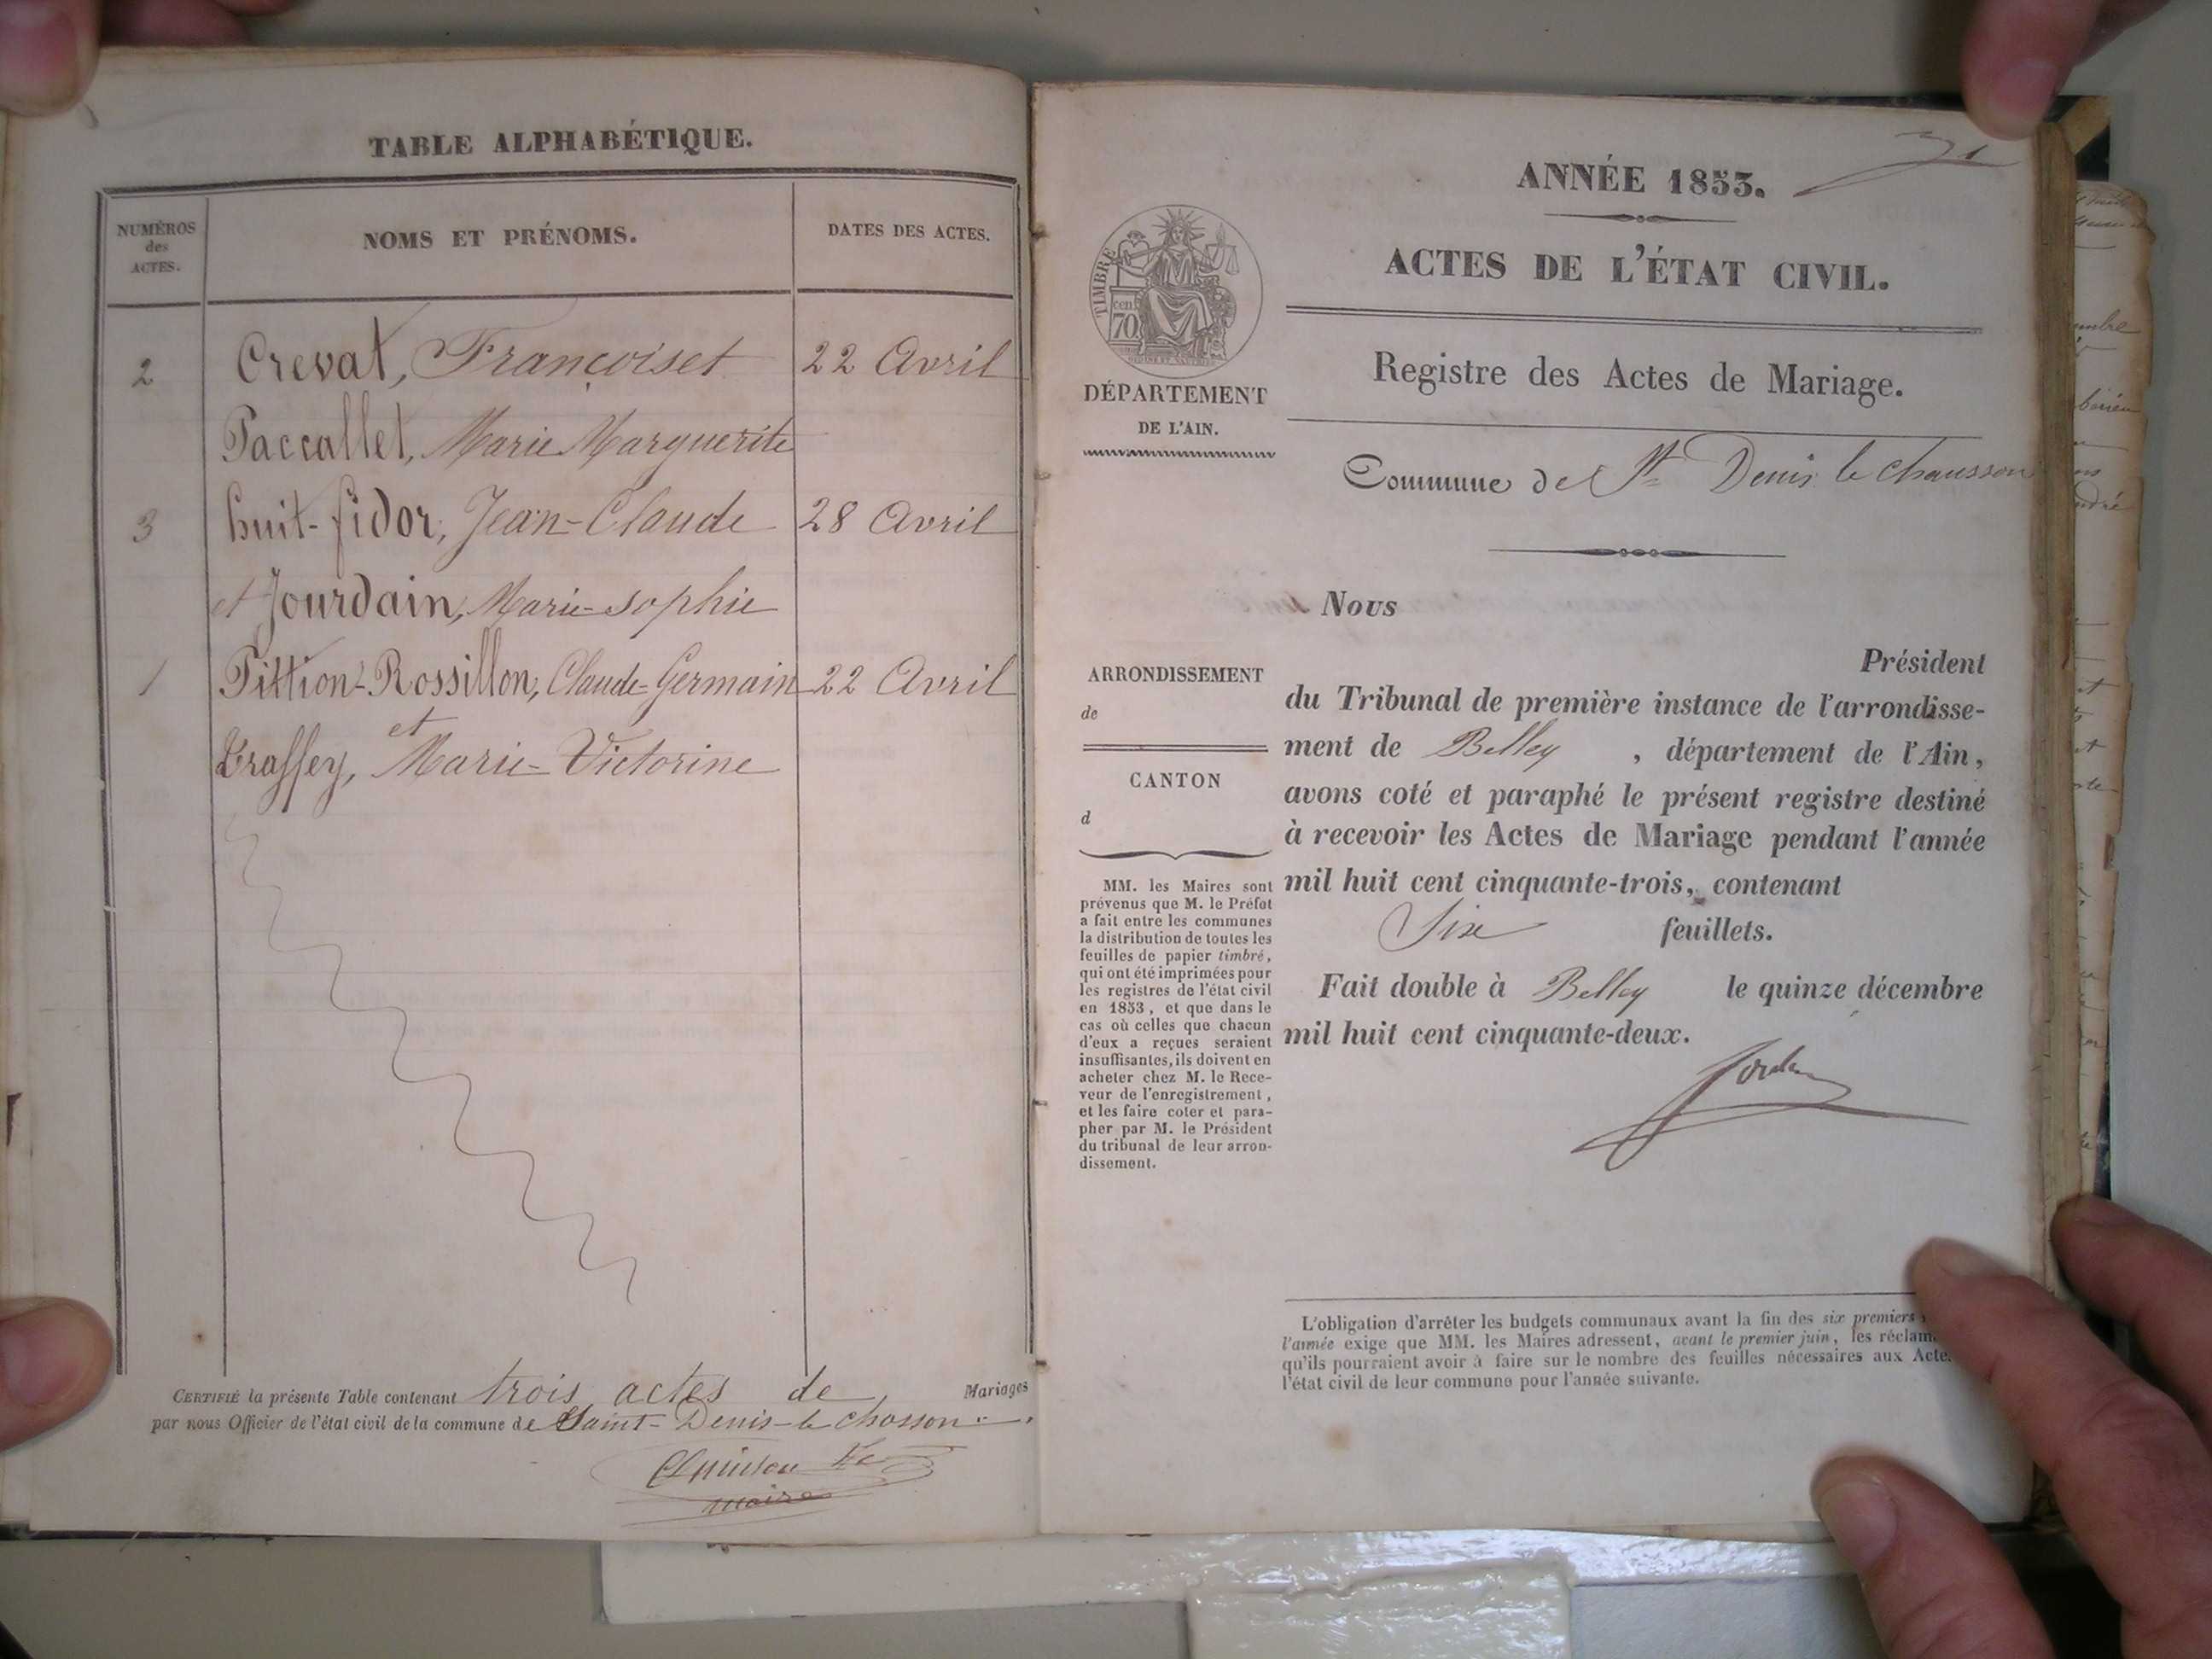 TABLE ALPHABÉTIQUE.
NUMÉROS
des
ACTES.
NOMS ET PRÉNOMS.
DATES DES ACTES.
2 Crevat, Françoiset 22 Avril
Paccallet, Marie Marguerite
3 huit-fidor, Jean-Claude 28 Avril
et Jourdain, Marie-sophie
1 Pittion-Rossillon, Claude-Germain 22 Avril
et
Marie-Victorine
CERTIFIÉ la présente Table contenant trois actes de Mariages
par nous Officier de l'état civil de la commune de Saint-Denis-le-chosson.
maire
ANNÉE 1853.
ACTES DE L'ÉTAT CIVIL.
TIMBRE
cen
70
DÉPARTEMENT
DE L'AIN.
Registre des Actes de Mariage.
Commune de St Denis le chausson
Nous
Président
du Tribunal de première instance de l'arrondisse-
ment de Belley, département de l'Ain,
avons coté et paraphé le présent registre destiné
à recevoir les Actes de Mariage pendant l'année
mil huit cent cinquante-trois, contenant
Six feuillets.
Fait double à Belley le quinze décembre
mil huit cent cinquante-deux.
ARRONDISSEMENT
de
CANTON
d
MM. les Maires sont
prévenus que M. le Préfet
a fait entre les communes
la distribution de toutes les
feuilles de papier timbré,
qui ont été imprimées pour
les registres de l'état civil
en 1853, et que dans le
cas où celles que chacun
d'eux a reçues seraient
insuffisantes, ils doivent en
acheter chez M. le Rece-
veur de l'enregistrement,
et les faire coter et para-
pher par M. le Président
du tribunal de leur arron-
dissement.
L'obligation d'arrêter les budgets communaux avant la fin des six premiers
l'année exige que MM. les Maires adressent, avant le premier juin, les réclam
qu'ils pourraient avoir à faire sur le nombre des feuilles nécessaires aux Acte
l'état civil de leur commune pour l'année suivante.